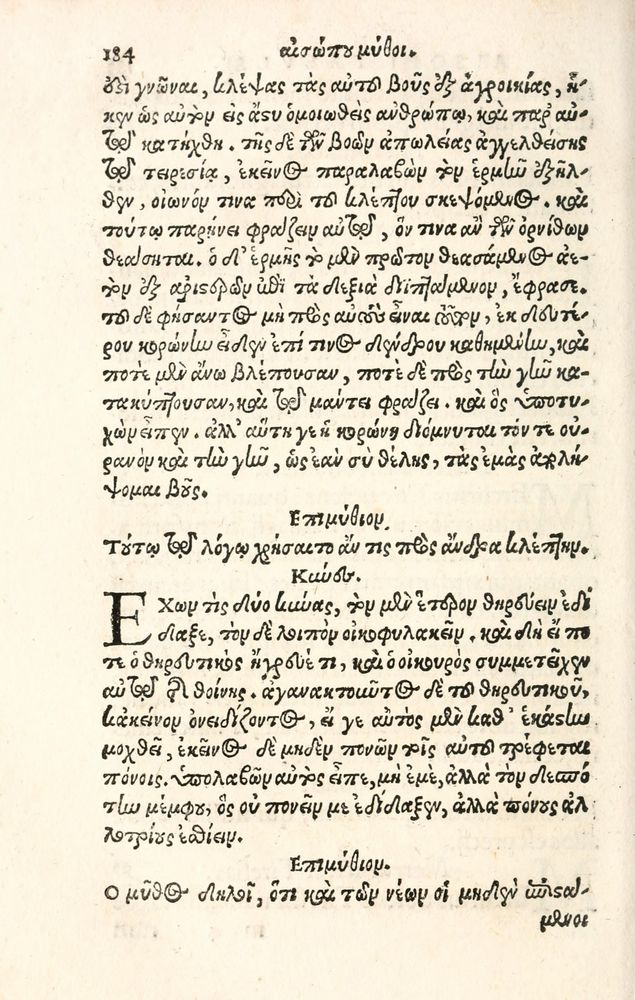 184 αἰσώπου μῦθοι.
δέϊ γνῶναι, κλέψας τὰς αὐτοῦ βοῦς ἐξ ἀγροικίας, ἧ-
κεν ὡς αὐτὸν εἰς ἄστυ ὁμοιωθεὶς ἀνθρώπῳ, καὶ παρ' αὐ-
τῷ κατήχθη. τῆς δὲ τῶν βοῶν ἀπωλείας ἀγγελθείσης
τῷ τειρεσίᾳ, ἐκεῖνος παραλαβὼν τὸν ἑρμῶ ἐξῆλ-
θεν, οἰωνόν τινα περὶ τοῦ κλέπτου σκεψόμενος. καὶ
τούτῳ παρῄνει φράζειν αὐτῷ, ὅν τινα ἂν τῶν ὀρνίθων
θεάσηται. ὁ δ' ἑρμῆς τὸ μὲν πρῶτον θεασάμενος ἀε-
τὸν ἐξ ἀριστερῶν ἐπὶ τὰ δεξιὰ διϊπτάμενον, ἔφρασε.
τοῦ δὲ φήσαντος μὴ πρὸς αὐτοὺς εἶναι τοῦτον, ἐκ δευτέ-
ρου κορώνην εἶδεν ἐπί τινος δένδρου καθημένην, καὶ
ποτὲ μὲν ἄνω βλέπουσαν, ποτὲ δὲ πρὸς τὴν γῆν κα-
τακύπτουσαν, καὶ τῷ μάντει φράζει. καὶ ὃς ὑποτυ-
χὼν εἶπεν. ἀλλ' αὕτη γε ἡ κορώνη διόμνυται τόν τε οὐ-
ρανὸν καὶ τὴν γῆν, ὡς ἐὰν σὺ θέλῃς, τὰς ἐμὰς ἀπολή-
ψομαι βοῦς.
Ἐπιμύθιον.
Τούτῳ τῷ λόγῳ χρήσαιτο ἄν τις πρὸς ἄνδρα κλέπτην.
Κύνες.
ΕΧων τὶς δύο κύνας, τὸν μὲν ἕτερον θηρεύειν ἐδί
δαξε, τὸν δὲ λοιπὸν οἰκοφυλακεῖν. καὶ δὴ εἴ πο
τε ὁ θηρευτικὸς ἤγρευέ τι, καὶ ὁ οἰκουρὸς συμμετεῖχεν
αὐτῷ τῆς θοίνης. ἀγανακτοῦντος δὲ τοῦ θηρευτικοῦ,
κἀκεῖνον ὀνειδίζοντος, εἴ γε αὐτὸς μὲν καθ' ἑκάστην
μοχθεῖ, ἐκεῖνος δὲ μηδὲν πονῶν τοῖς αὐτοῦ τρέφεται
πόνοις. ὑπολαβὼν αὐτὸς εἶπε, μὴ ἐμὲ, ἀλλὰ τὸν δεσπό
την μέμφου, ὃς οὐ πονεῖν με ἐδίδαξεν, ἀλλὰ πόνους ἀλ
λοτρίους ἐσθίειν.
Ἐπιμύθιον.
Ο μῦθος δηλοῖ, ὅτι καὶ τῶν νέων οἱ μηδὲν ἐπιστά-
μενοι